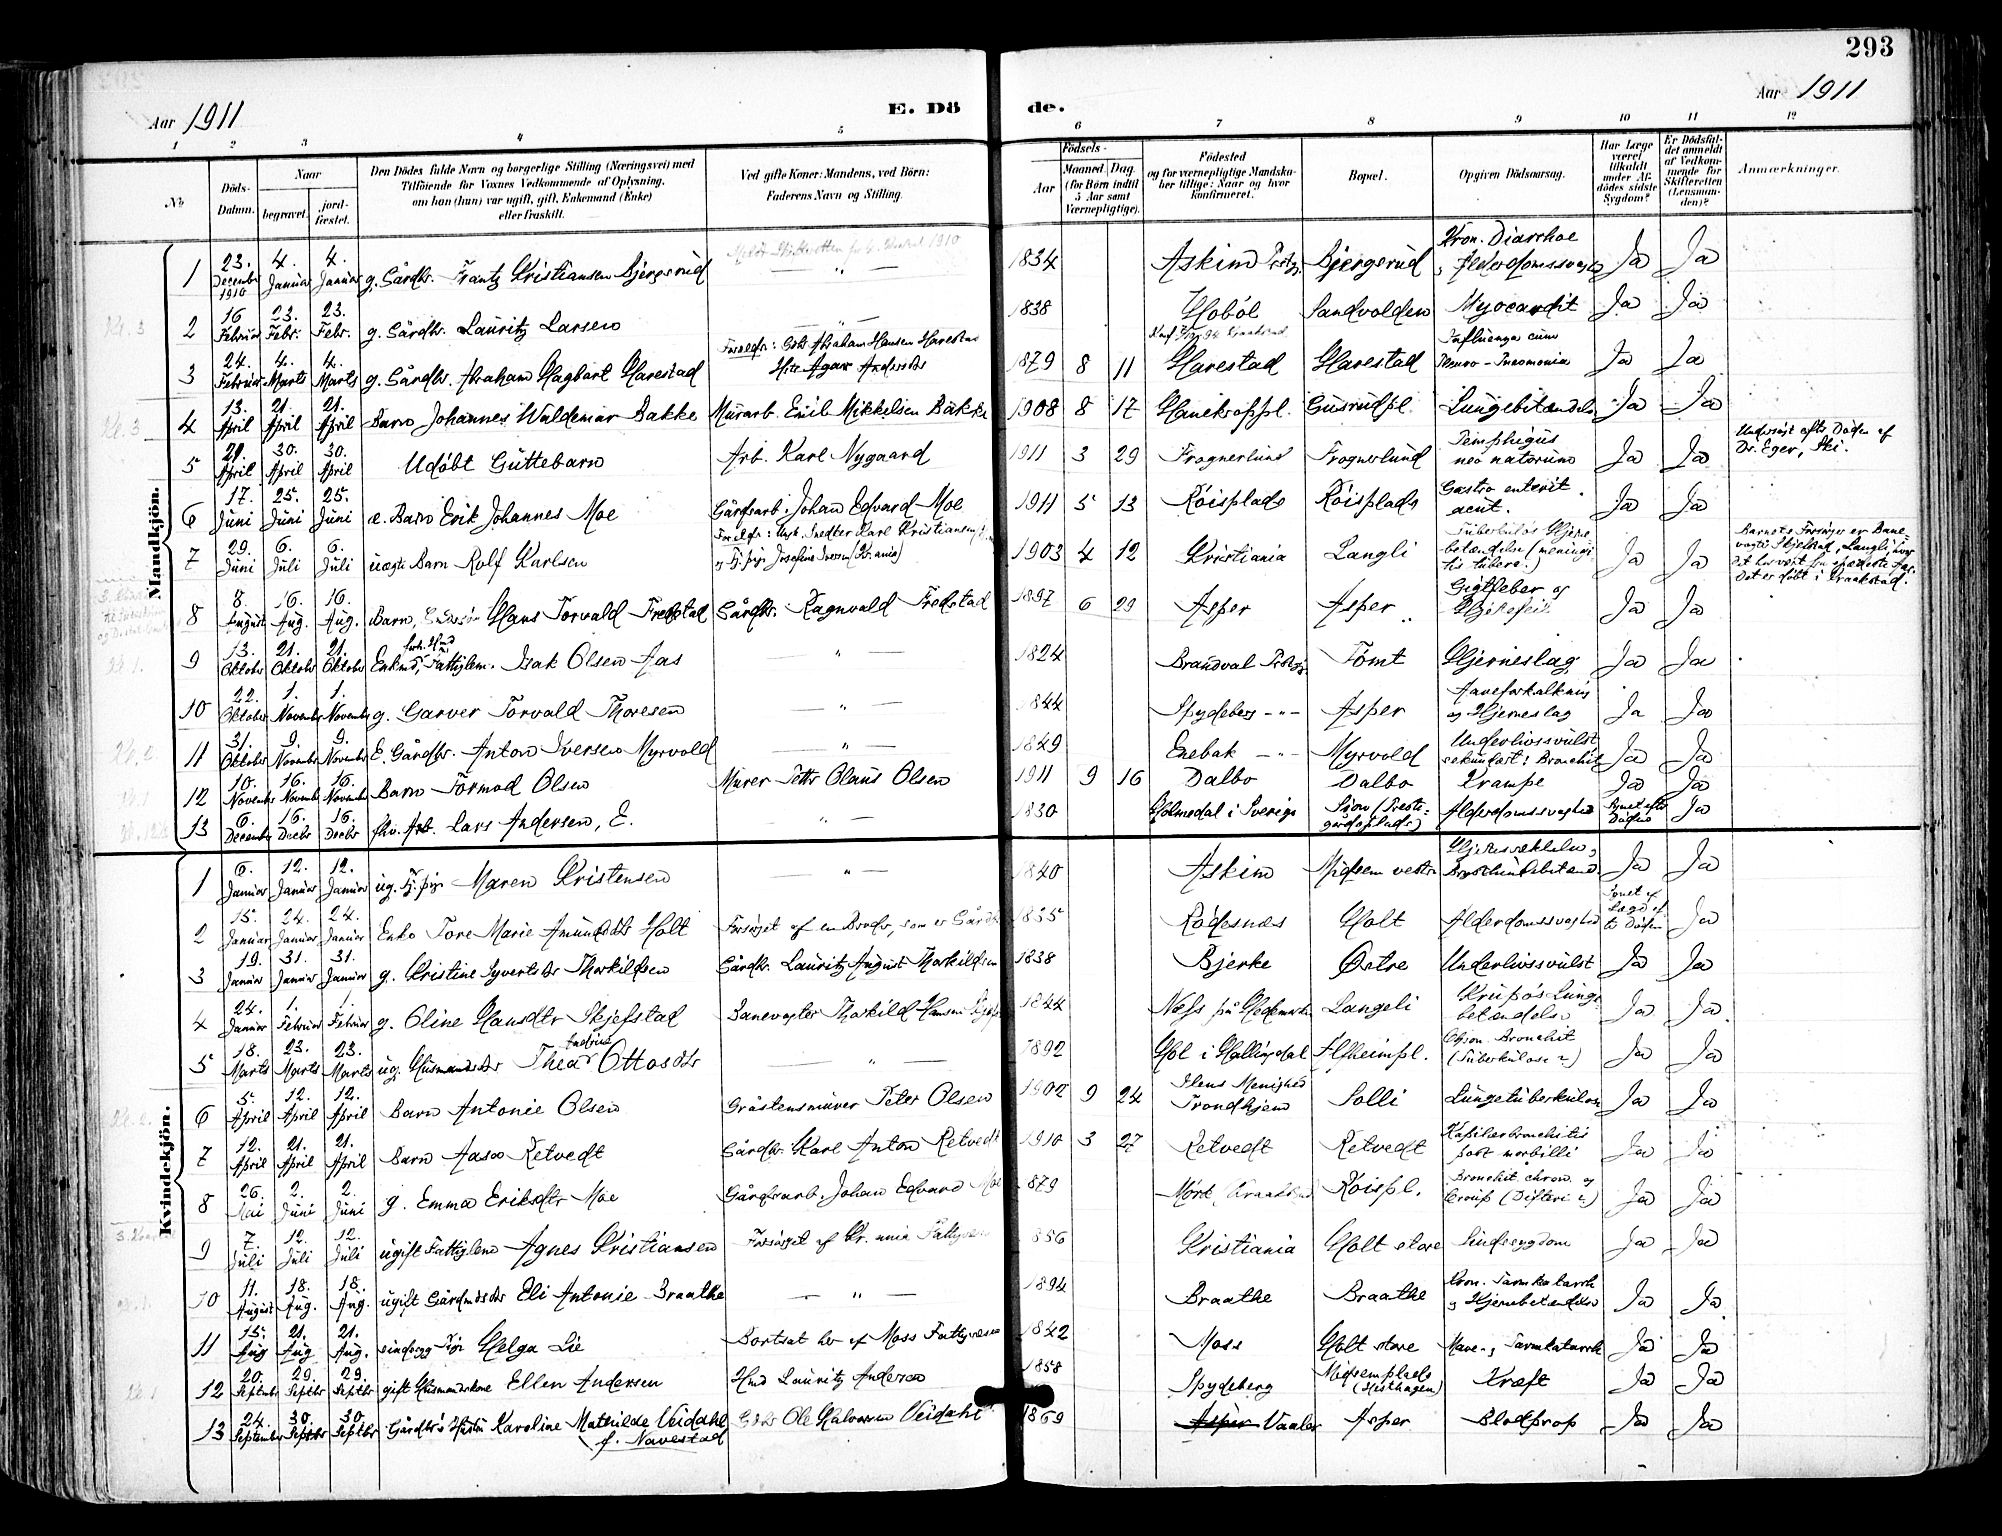 293
Aar 1911
E. Dö de.
Aar 1911
1 2 3 4 5 6 7 8 9 10 11 12
No
Döds-Datum.
Naar
begravet.
jord-fæstet.
Den Dödes fulde Navn og borgerlige Stilling (Næringsvei) med
Tilföiende for Voxnes Vedkommende af Oplysning,
om han (hun) var ugift, gift, Enkemand (Enke)
eller fraskilt.
Ved gifte Koner: Mandens, ved Börn:
Faderens Navn og Stilling.
Födsels-
Aar
Maaned. Dag.
(for Börn indtil
5 Aar samt
Værnepligtige).
Födested
og for værnepligtige Mandska-
ber tillige: Naar og hvor
konfirmeret.
Bopæl.
Opgiven Dödsaarsag.
Har Læge
været
tilkaldt
under Af-
dödes sidste
Sygdom?
Er Dödsfal-
det anmeldt
af Vedkom-
mende for
Skifteretten
(Lensman-
den)?
Anmærkninger.
Mandkjön.
1 23. December 1910 4. Januar 4. Januar g. Gårdbr. Frantz Kristiansen Bjergerud — " — 1834 Askim Prstgj. Bjergerud Kron. Diarrhoe Ja Ja
2 16 Februar 23. Febr. 23. Febr. g. Gårdbr. Lauritz Larsen — " — 1838 Hobøl Sandvolden Myocardit Ja Ja
3 24. Februar 4. Marts 4. Marts g. Gårdbr. Abraham Hagbart Harestad Abraham Hansen Harestad 1879 8 11 Harestad Harestad Influenza cum Pneumonia Ja Ja
4 13. April 21. April 21. April Barn Johannes Waldemar Bakke Murarb. Emil Mikkelsen Bakke 1908 8 17 Gusrudpl. Lungebetændelse Ja Ja
5 29. April 30. April 30. April Udöbt Guttebarn Arb. Karl Nygaard 1911 3 29 Frognerlund Frognerlund Pemphigus neonatorum Ja Ja Undersögt efter Döden af Dr. Eger, Ski.
6 17. Juni 25. Juni 25. Juni æ. Barn Erik Johannes Moe Gårdsarb. Johan Edvard Moe 1911 5 13 Röisplads Röisplads Gastro enterit. acut. Ja Ja
7 29. Juni 6. Juli 6. Juli uægte Barn Rolf Karlsen Karl Kristiansen 1903 4 12 Kristiania Langli Tuberkulös Hjernebetændelse Ja Ja
8 8. August 16. Aug. 16. Aug. Barn, Hans Torvald Fredstad Gårdbr. Ragnvald Fredstad 1897 6 29 Asper Asper Gigtfeber og Hjertefeil Ja Ja
9 13. Oktober 21. Oktober 21. Oktober Enkmd., Fattiglem. Isak Olsen Aas — " — 1824 Brandval Prstgj. Tomt Hjerneslag Ja Ja
10 22. Oktober 1. November 1. November g. Garver Torvald Thoresen — " — 1844 Spydeberg — " — Asper Aareforkalkning og Hjerneslag Ja Ja
11 31. Oktober 9. November 9. November E. Gårdbr. Anton Iversen Myrvold — " — 1849 Enebak — " — Myrvold Underlivssvulst Ja Ja
12 10. November 16. November 16. November Barn Tormod Olsen Murer Petter Olaus Olsen 1911 9 16 Dalbo Dalbo Krampe Ja Ja
13 6. December 16. Decbr 16. Decbr fhv. Arb. Lars Andersen, E. — " — 1830 Holmedal i Sverige Alderdomssvaghed Synet efter Döden Ja
Kvindekjön.
1 6. Januar 12. Januar 12. Januar ug. Tj.pige Maren Kristensen — " — 1840 Askim Midsem vestre Ja Ja
2 15. Januar 24. Januar 24. Januar Enke Tore Marie Amundsdtr Holt Forsörget af en Broder, som er Gårdbr. 1835 Rödenæs Holt Alderdomssvaghed Ja
3 19. Januar 31. Januar 31. Januar g. Kristine Syvertsdtr Thorkildsen Gårdbr. Lauritz August Thorkildsen 1838 Bjerke Östre Underlivssvulst Ja Ja
4 24. Januar 1. Februar 1. Februar g. Oline Hansdtr Skjefstad Banevogter Thorkild Hansen 1844 Næs på Hedemarken Langeli Krupös Lungebetændelse Ja Ja
5 18. Marts 23. Marts 23. Marts ug. Husmandsdtr Thea Ottosdtr — " — 1892 Hol i Hallingdal Alfheimpl. Bronchit (Tuberkulose?) Ja Ja
6 5. April 12. April 12. April Barn Antonie Olsen Gråstensmurer Peter Olsen 1902 9 24 Ilens Menighed Trondhjem Solli Lungetuberkulose Ja Ja
7 12. April 21. April 21. April Barn Aasa Retvedt Gårdbr. Karl Anton Retvedt 1910 3 27 Retvedt Retvedt Kapillærbronchitis post morbilli Ja Ja
8 26. Mai 2. Juni 2. Juni g. Emma Eriksdtr Moe Gårdsarb. Johan Edvard Moe 1879 Mörk (Kraakstad) Röispl. Bronchit chron. og Croup (Difteri?) Ja Ja
9 7. Juli 12. Juli 12. Juli ugift Fattiglem Agnes Kristiansen Forsörget af Kr.ania Fattigvæsen 1856 Kristiania Holt store Sindssygdom Ja Ja
10 11. August 18. Aug. 18. Aug. ugift Gårdmdsdtr Eli Antonie Braathe — " — 1894 Braathe Braathe Kron. Tarmkatarrh og Hjernebetændelse Ja Ja
11 15. Aug 21. Aug 21. Aug. sindssyg Pige Helga Lie Bortsat her af Moss Fattigvæsen 1842 Moss Holt store Mave- og Tarmkatarrh Ja Ja
12 20. September 29. Septbr 29. Septbr gift Husmandskone Ellen Andersen Hmd Lauritz Andersen 1858 Spydeberg Midsemplads (Hesthagen) Kræft Ja Ja
13 24. September 30. Septbr 30. Septbr Gårdbr's Hustru Karoline Mathilde Veidahl f. Navestad Gdbr Ole Halvorsen Veidahl 1869 Asper Vaaler Asper Blodprop Ja Ja